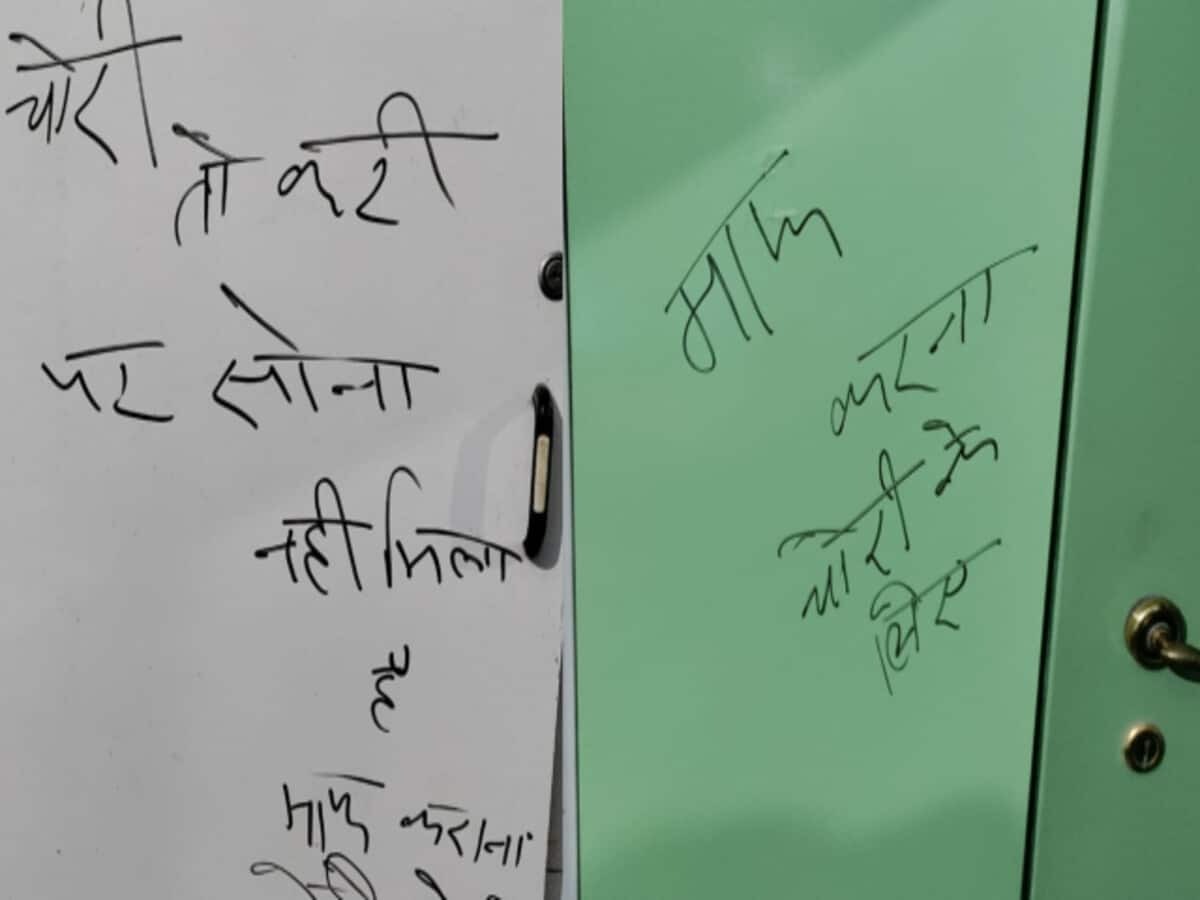 चोरी
तो करी
पर सोना
नही मिला
है
माफ करना
माफ
करना
चोरी के
लिए